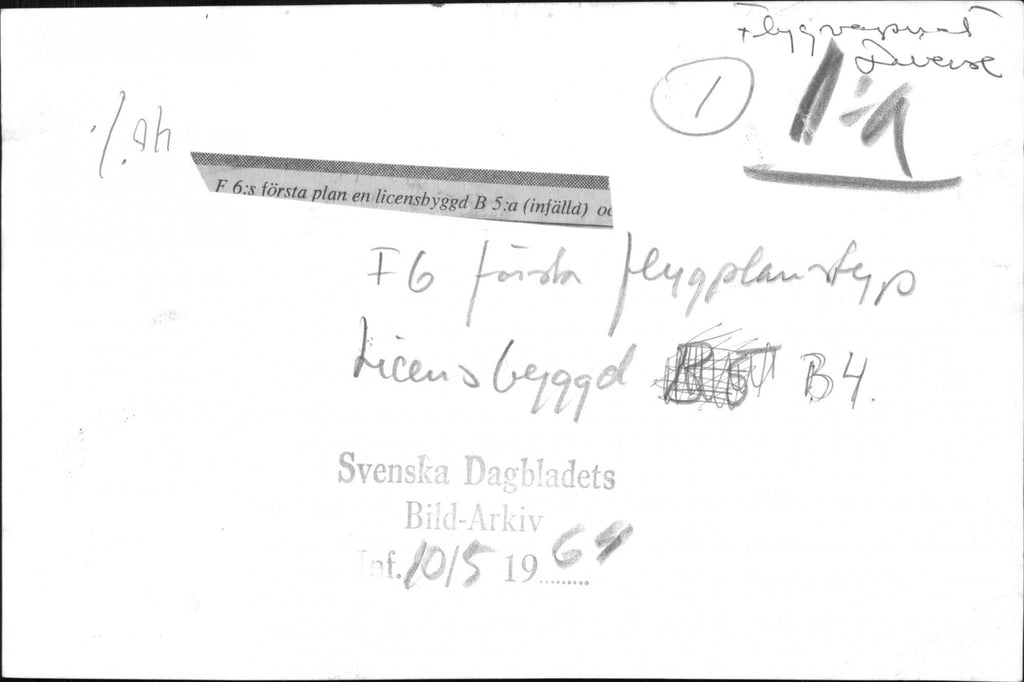 Flygvapnet
Diverse
1
F 6:s första plan en licensbyggd B 5:a (infälld) oc
F6 första flygplanstyp
Licensbyggd B5 B4.
Svenska Dagbladets
Bild-Arkiv
Inf. 10/5 1969